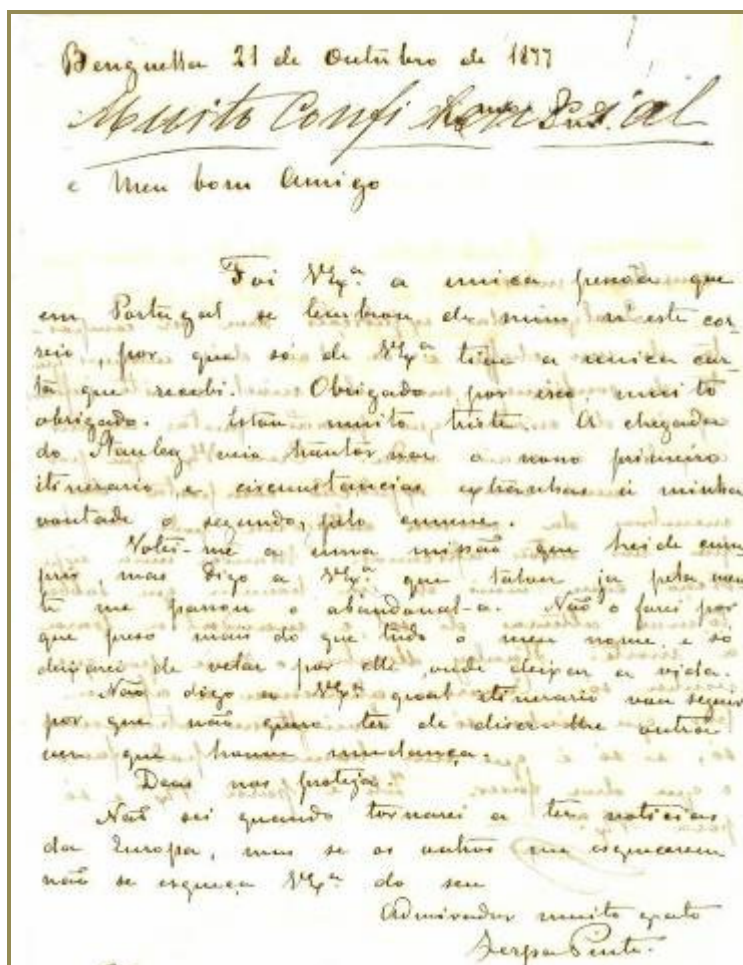 Benguella 21 de Outubro de 1877
Muito Confidencial
e Meu bom Amigo
Foi VExª. a unica pessoa que
em Portugal se lembrou de mim n'este cor-
reio, por que só de VExª tive a unica car-
ta que recebi. Obrigado por isso, muito
obrigado. Estou muito triste. A chegada
do Stanley veio transtornar o nosso primeiro
itinerario, e circumstancias extranhas á minha
vontade o segundo, pelo
Votei-me a uma missão que heide cum-
prir, mas digo a VExª. que talvez ja pela men-
te me passou o abandonal-a. Não o farei por
que preso mais do que tudo o meu nome e só
deixarei de velar por elle onde deixar a vida.
Não digo a VExª. qual itinerario vou seguir
por que não quero ter de dizer-lhe outra
vez que houve mudança.
Deus nos proteja.
Não sei quando tornarei a ter noticias
da Europa, mas se os outros me esquecerem
não se esqueça VExª. do seu
Admirador muito grato
Serpa Pinto.